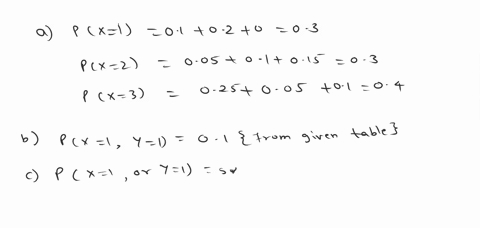 a) P(x=1) = 0.1 + 0.2 + 0 = 0.3
P(x=2) = 0.05 + 0.1 + 0.15 = 0.3
P(x=3) = 0.25 + 0.05 + 0.1 = 0.4
b) P(x=1, Y=1) = 0.1 {from given table}
c) P(x=1, or Y=1) =